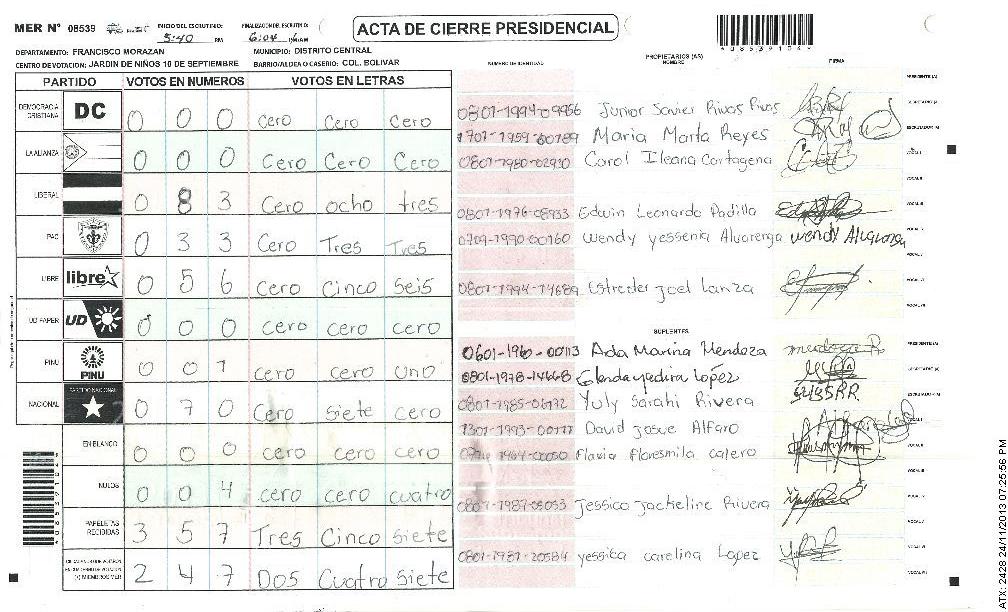 MER N° 08539 INICIO DEL ESCRUTINIO: 5:40 PM FINALIZACION DEL ESCRUTINIO: 6:04
ACTA DE CIERRE PRESIDENCIAL
DEPARTAMENTO: FRANCISCO MORAZAN MUNICIPIO: DISTRITO CENTRAL
CENTRO DE VOTACION: JARDIN DE NIÑOS 10 DE SEPTIEMBRE BARRIO/ALDEA O CASERIO: COL. BOLIVAR
PARTIDO VOTOS EN NUMEROS VOTOS EN LETRAS
DEMOCRACIA CRISTIANA DC 0 0 0 cero cero cero
LA ALIANZA 0 0 0 Cero Cero Cero
LIBERAL 0 8 3 Cero ocho tres
PAC 0 3 3 Cero Tres Tres
LIBRE libre 0 5 6 Cero Cinco Seis
UD FAPER UD 0 0 0 cero cero cero
PINU PINU 0 0 1 cero cero uno
NACIONAL PARTIDO NACIONAL 0 7 0 Cero Siete cero
EN BLANCO 0 0 0 cero cero cero
NULOS 0 0 4 cero cero cuatro
PAPELETAS RECIBIDAS 3 5 7 Tres Cinco siete
2 4 7 Dos Cuatro Siete
NUMERO DE IDENTIDAD PROPIETARIOS (AS) NOMBRE FIRMA
0801-1994-09956 Junior Javier Rivas Rivas
1701-1959-00789 Maria Marta Reyes
0801-1980-02930 Carol Ileana Cartagena
0801-1976-08933 Edwin Leonardo Padilla
0709-1990-00160 wendy yessenia Alvarenga
0801-1994-14689 Estreder joel Lanza
SUPLENTES
0601-1960-00113 Ada Marina Mendoza
0801-1978-14668 Glenda yadira López
0801-1985-06172 Yuly Sarahi Rivera
1301-1993-00177 David Josue Alfaro
1964-00050 Flavia Floresmila calero
0801-1987-05053 Jessica Jackeline Rivera
0801-1981-20584 yessica carelina Lopez
ATX 2428 24/11/2013 07:25:56 PM